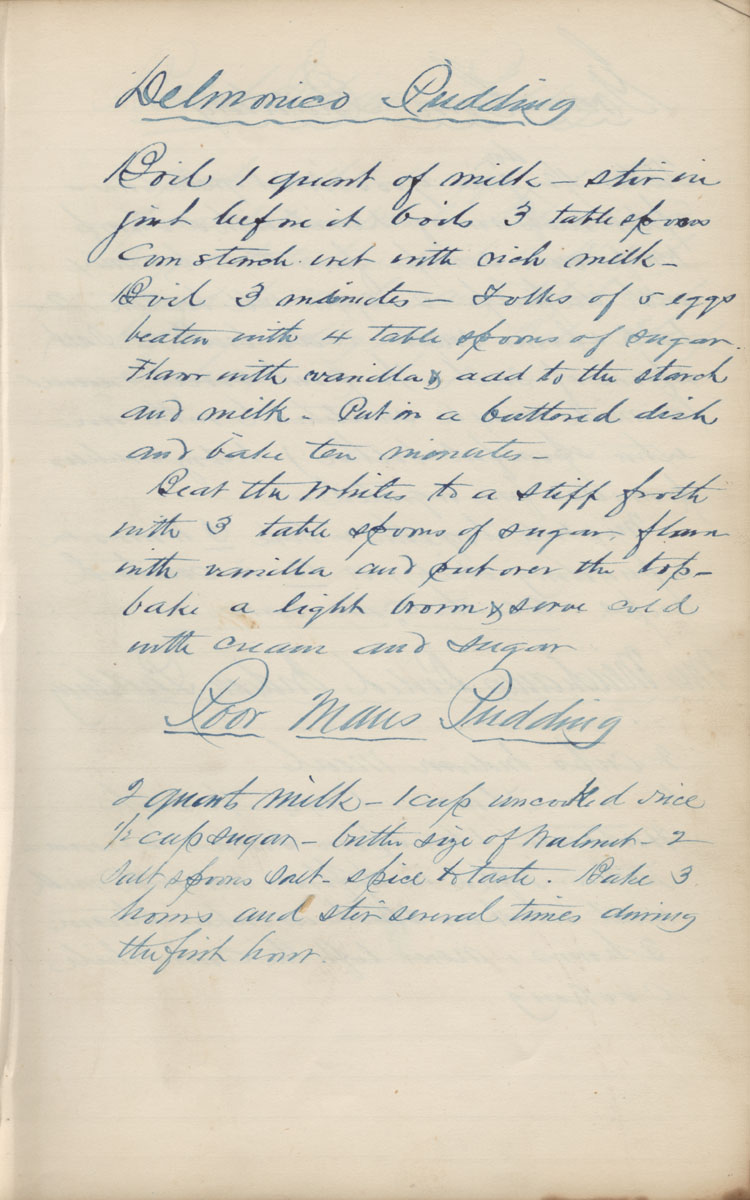 Delmonico Pudding
Boil 1 quart of milk – stir in
just before it boils 3 table spoons
Corn starch wet with rich milk –
Boil 3 minutes – Yolks of 5 eggs
beaten with 4 table spoons of sugar.
Flavor with vanilla & add to the starch
and milk – Put in a buttered dish
and bake ten minutes –
Beat the whites to a stiff froth
with 3 table spoons of sugar. flavor
with vanilla and put over the top –
bake a light brown & serve cold
with cream and sugar
Poor Mans Pudding
2 quart milk – 1 cup uncooked rice
1/2 cup sugar – butter size of Walnut – 2
Salt spoons Salt – spice to taste. Bake 3
hours and stir several times during
the first hour.